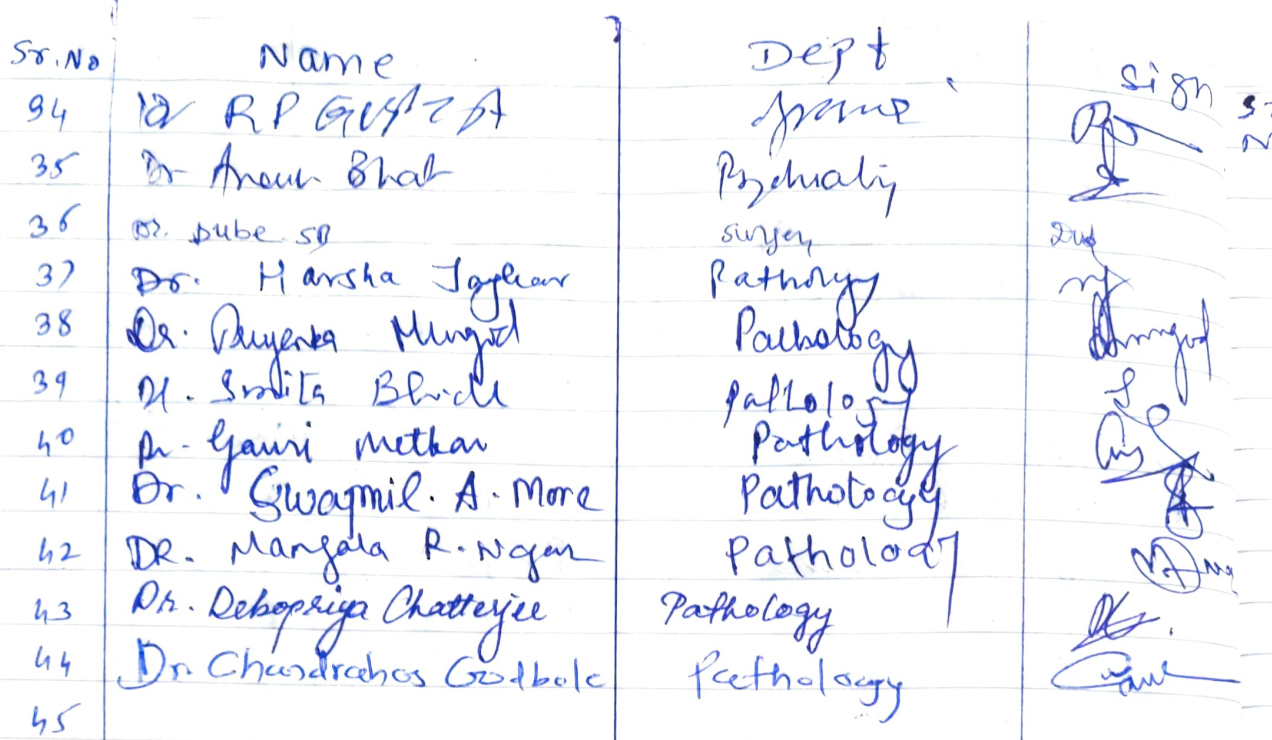 Sr. No Name Dept sign
34 Dr R P GUPTA
35 Dr Bhat Psychiatry
36 Dr. Dube SB surgery
37 Dr. Harsha Jaykar Pathology
38 Dr. Priyanka Mungod Pathology
39 Dr. Smita Bhide Pathology
40 Dr. Gauri Metkar Pathology
41 Dr. Swapnil. A. More Pathology
42 DR. Mangala R. Pathology
43 Dr. Debopriya Chatterjee Pathology
44 Dr. Chandrahas Godbole Pathology
45